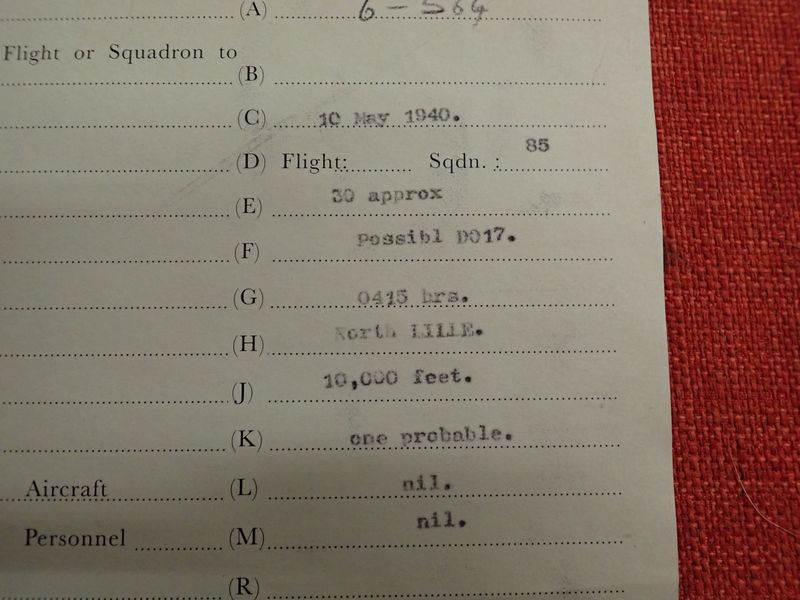 (A) 6 - S64
Flight or Squadron to
(B)
(C) 10 May 1940.
(D) Flight: Sqdn. : 85
(E) 30 approx
(F) Possibl DO17.
(G) 0415 hrs.
(H) North LILLE.
(J) 10,000 feet.
(K) one probable.
Aircraft (L) nil.
Personnel (M) nil.
(R)